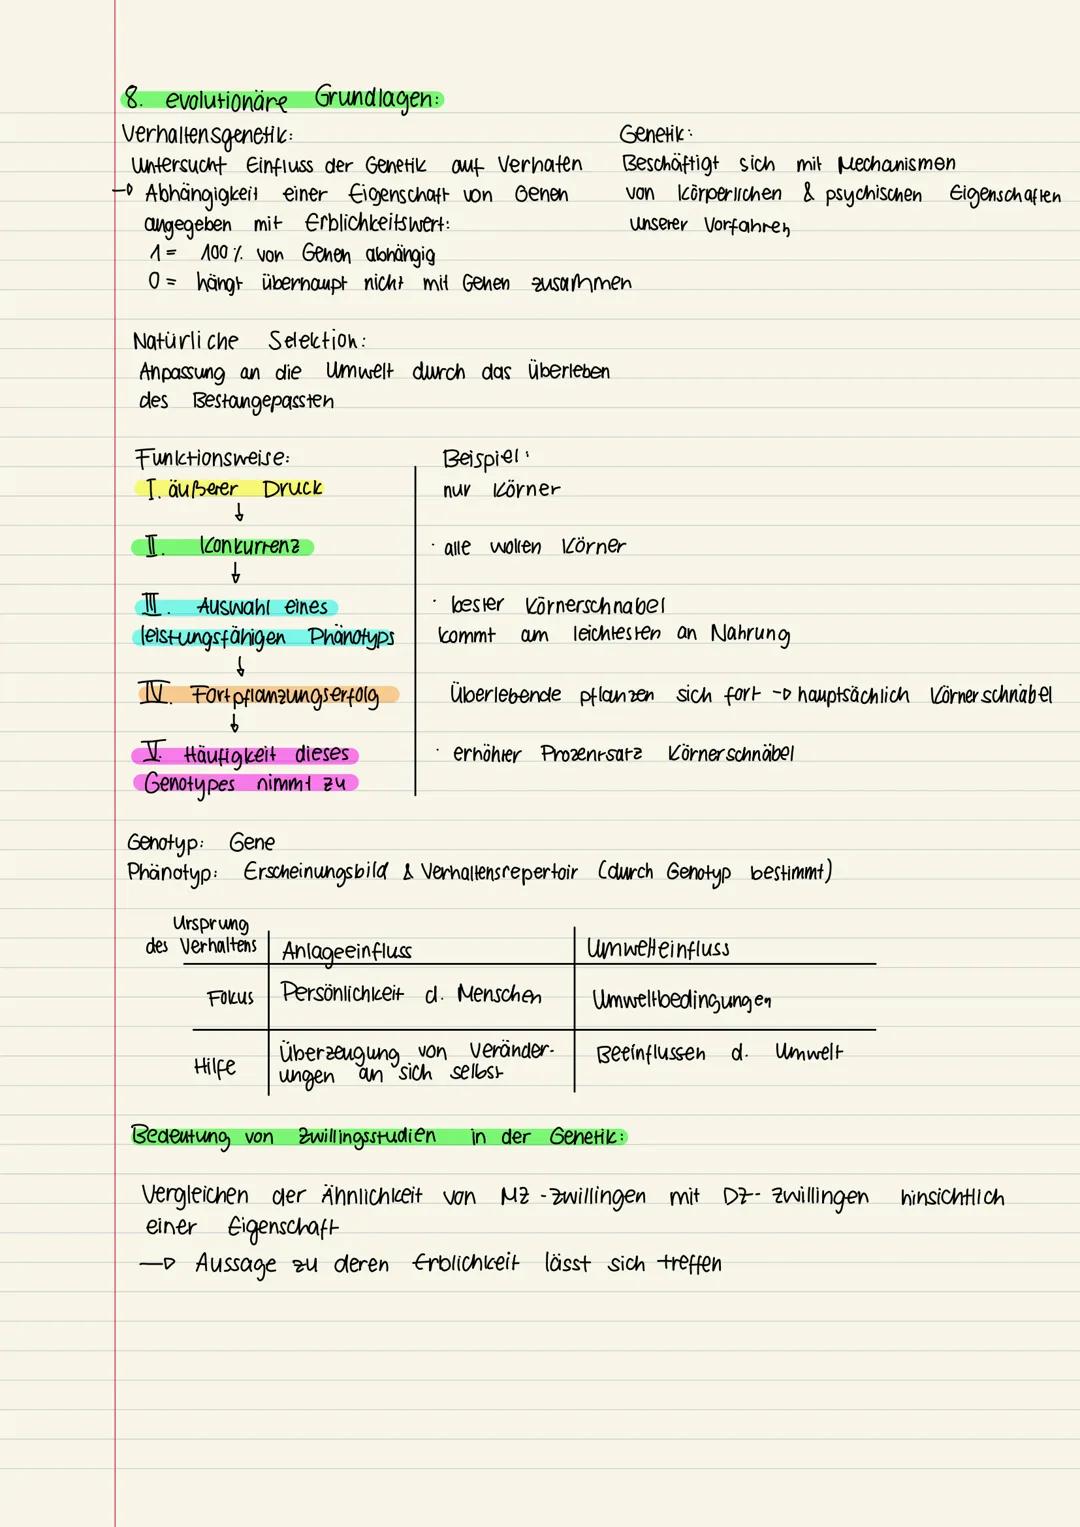 8. evolutionäre Grundlagen:
Verhaltensgenetik:
Untersucht Einfluss der Genetik auf Verhaten
→ Abhängigkeit einer Eigenschaft von Genen
angegeben mit Erblichkeitswert:
1 = 100% von Genen abhängig
0 = hängt überhaupt nicht mit Genen zusammen
Genetik:
Beschäftigt sich mit Mechanismen
von körperlichen & psychischen Eigenschaften
unserer Vorfahren
Natürliche Selektion:
Anpassung an die Umwelt durch das Überleben
des Bestangepassten
Funktionsweise:
Beispiel:
I. äußerer Druck
nur Körner
↓
II. Konkurrenz
· alle wollen Körner
↓
III. Auswahl eines
leistungsfähigen Phänotyps
· bester Körnerschnabel
kommt am leichtesten an Nahrung
↓
IV. Fortpflanzungserfolg
Überlebende pflanzen sich fort → hauptsächlich Körnerschnäbel
↓
V. Häufigkeit dieses
Genotypes nimmt zu
· erhöher Prozentsatz Körnerschnäbel
Genotyp: Gene
Phänotyp: Erscheinungsbild & Verhaltensrepertoir (durch Genotyp bestimmt)
Ursprung
des Verhaltens
Anlageeinfluss
Umwelteinfluss
Fokus
Persönlichkeit d. Menschen
Umweltbedingungen
Hilfe
Überzeugung von Veränder-
ungen an sich selbst
Beeinflussen d. Umwelt
Bedeutung von Zwillingsstudien in der Genetik:
Vergleichen der Ähnlichkeit von MZ-Zwillingen mit DZ-Zwillingen hinsichtlich
einer Eigenschaft
→ Aussage zu deren Erblichkeit lässt sich treffen